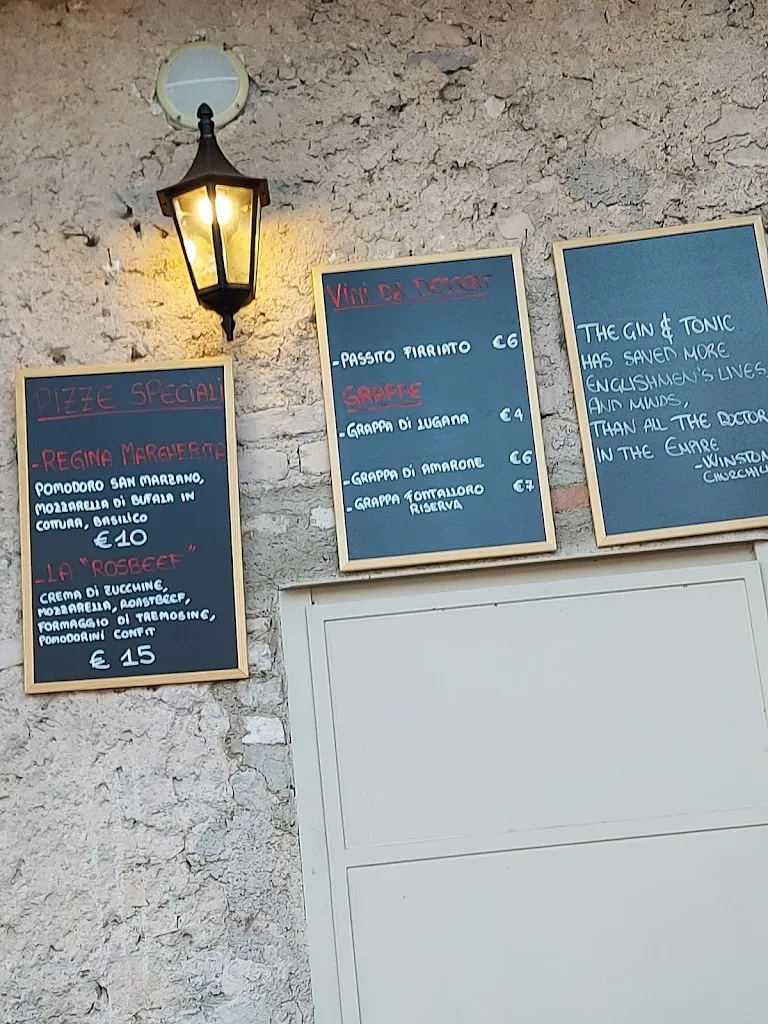 PIZZE SPECIALI
-REGINA MARGHERITA
POMODORO SAN MARZANO,
MOZZARELLA DI BUFALA IN
COTTURA, BASILICO
€10
-LA "ROSBEEF"
CREMA DI ZUCCHINE,
MOZZARELLA, ROASTBEEF,
FORMAGGIO DI TREMOSINE,
POMODORINI CONFIT
€ 15
VINI DA DESSERT
-PASSITO FIRRIATO €6
GRAPPE
-GRAPPA DI LUGANA €4
-GRAPPA DI AMARONE €6
-GRAPPA FONTALLORO €7
RISERVA
THE GIN & TONIC
HAS SAVED MORE
ENGLISHMEN'S LIVES,
AND MINDS,
THAN ALL THE DOCTOR
IN THE EMPIRE
-WINSTON
CHURCHILL